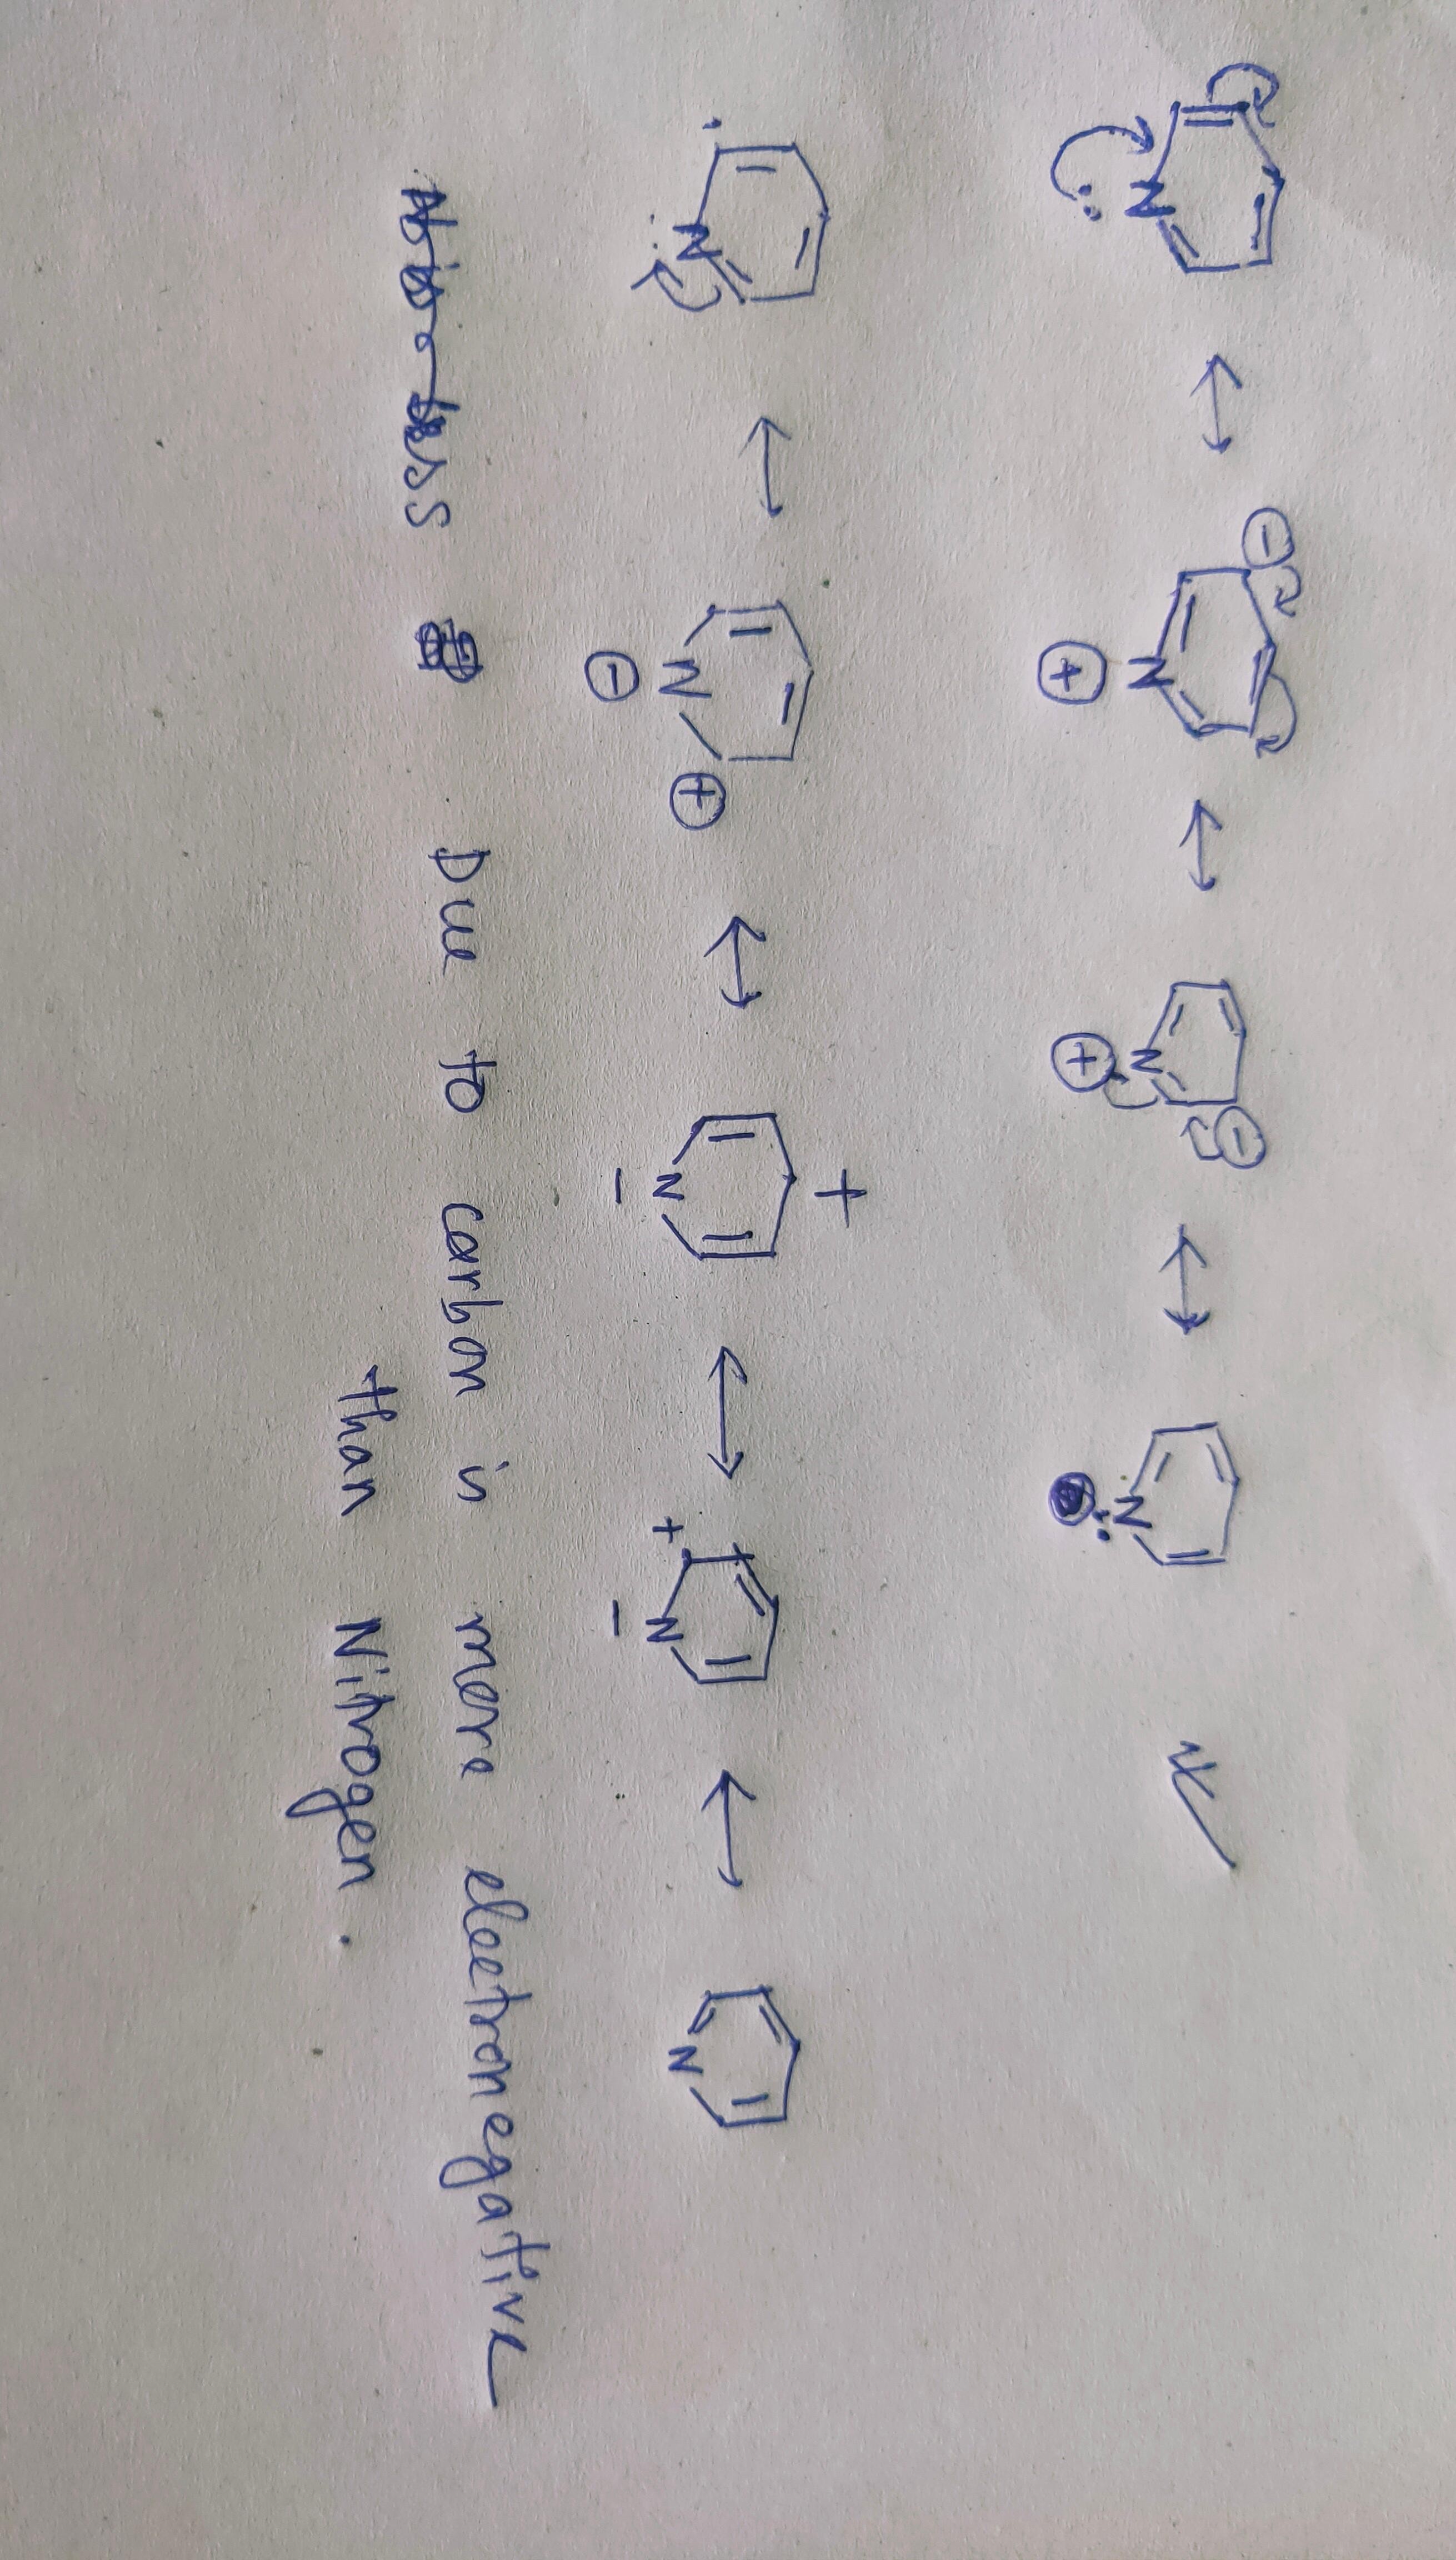 N N N N
⊕ ⊖ ⊕ ⊖
N N N N N
⊖ ⊕ - + + -
Due to carbon is more electronegative
than Nitrogen.